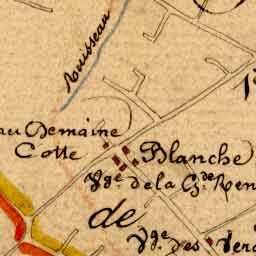 Ruisseau
au Demaine
Cotte Blanche
Vge. de la Gde.
de
Vge. des